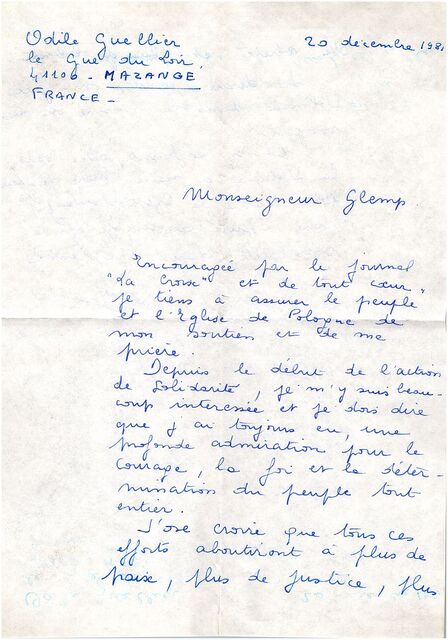 Odile Guellier
le Gué du Loir.
41100 - MAZANGE
FRANCE -
20 décembre 1981
Monseigneur Glemp.
Encouragée par le journal
"La Croix" et de tout cœur,
je tiens à assurer le peuple
et l'Eglise de Pologne de
mon soutien et de ma
prière.
Depuis le début de l'action
de Solidarité, je m'y suis beau-
coup interessée et je dois dire
que j'ai toujours eu, une
profonde admiration pour le
courage, la foi et la déter-
mination du peuple tout
entier.
J'ose croire que tous ces
efforts aboutiront à plus de
paix, plus de justice, plus